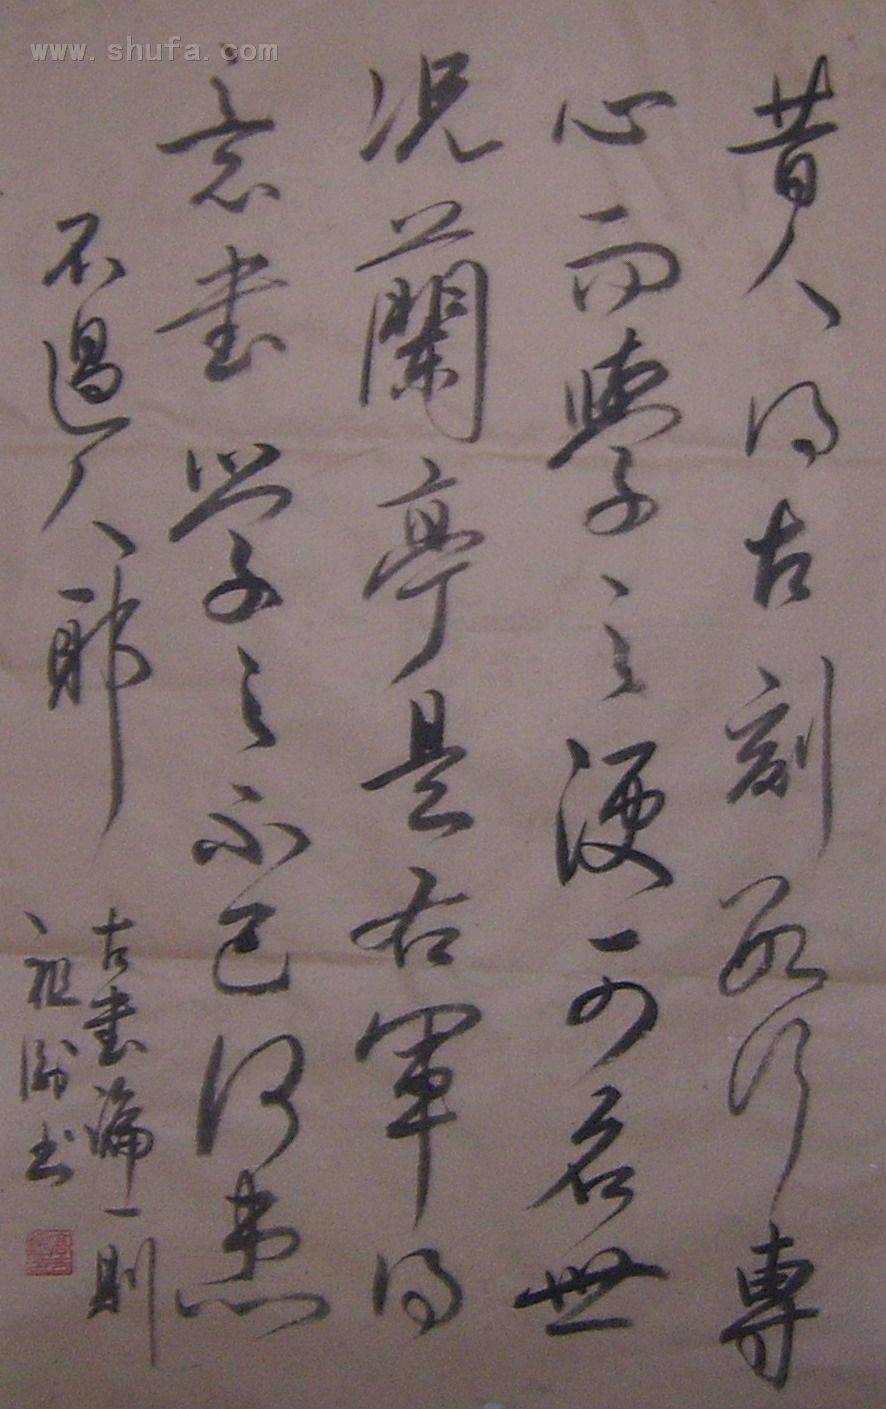 www.shufa.com
昔人得古刻数行專
心而學之便可名世
况蘭亭是右軍得
意書學之不已何患
不過人耶
古書論一則
祖 书